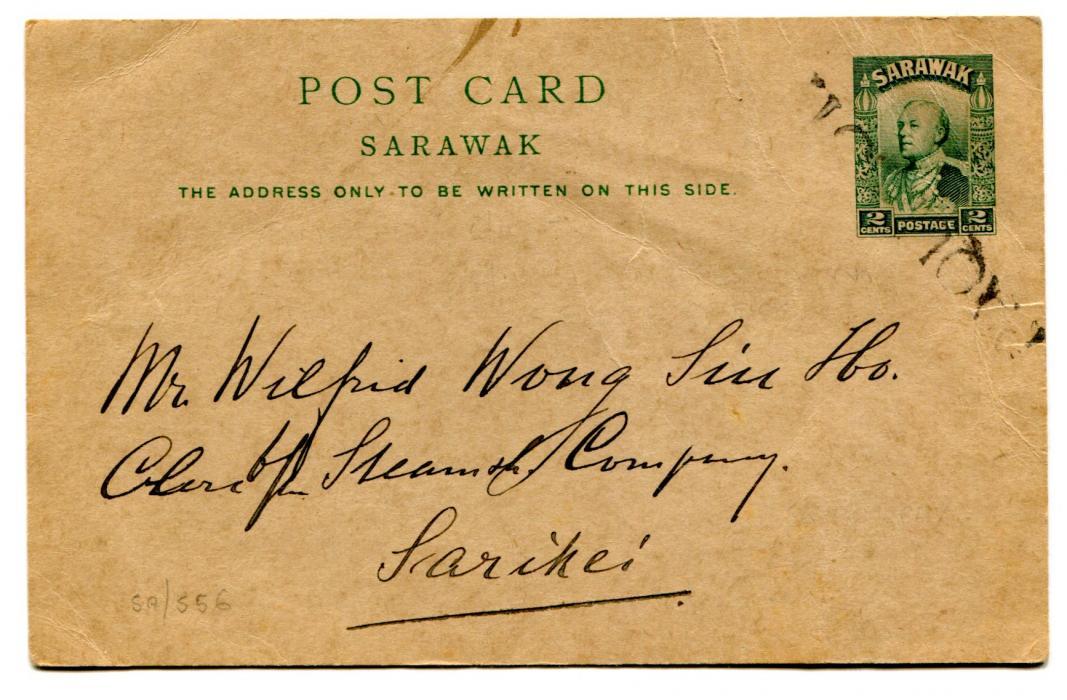 POST CARD
SARAWAK
THE ADDRESS ONLY TO BE WRITTEN ON THIS SIDE.
SARAWAK
2 CENTS POSTAGE 2 CENTS
Mr. Wilfrid Wong Sin Ho.
Steamsh Company.
Sarikei
SA/556